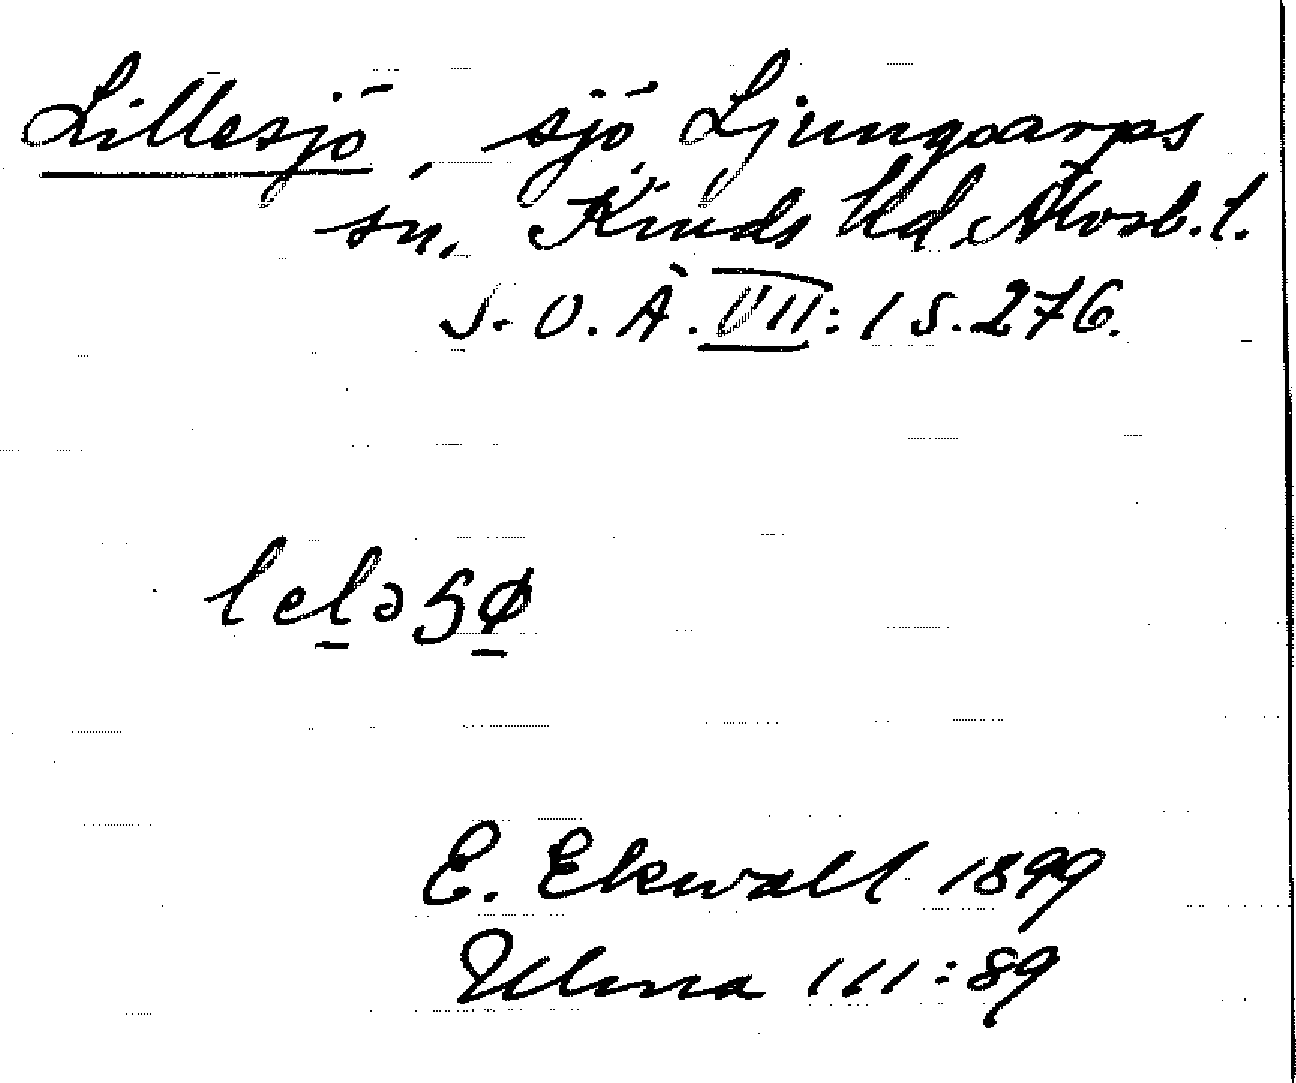 Lillesjö, sjö, Ljungsarps
sn, Kinds hd, Älvsb.l.
S.O.Ä. VII:1 s.276.
leləɧø
E. Ekwall 1899
Ulma 111:89